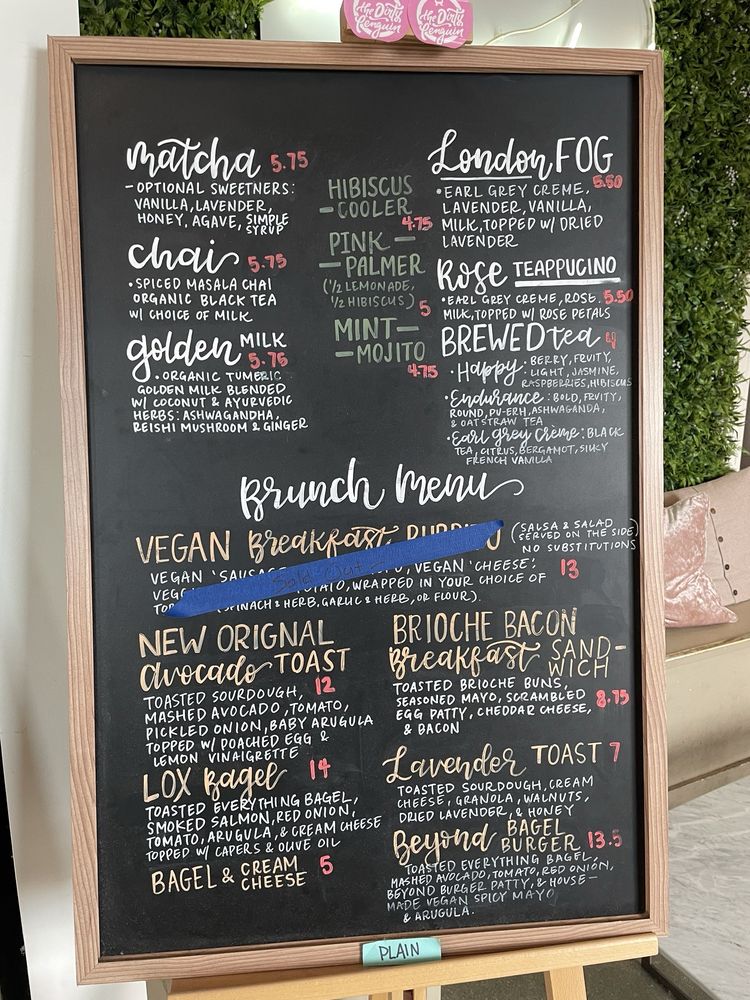 the Dirty Penguin
the Dirty Penguin
matcha 5.75
- OPTIONAL SWEETNERS:
VANILLA, LAVENDER,
HONEY, AGAVE, SIMPLE
SYRUP
chai 5.75
• SPICED MASALA CHAI
ORGANIC BLACK TEA
W/ CHOICE OF MILK
golden MILK
5.75
• ORGANIC TUMERIC
GOLDEN MILK BLENDED
W/ COCONUT & AYURVEDIC
HERBS: ASHWAGANDHA,
REISHI MUSHROOM & GINGER
HIBISCUS
- COOLER
4.75
PINK -
- PALMER
(1/2 LEMONADE,
1/2 HIBISCUS) 5
MINT -
- MOJITO
4.75
London FOG
• EARL GREY CREME, 5.50
LAVENDER, VANILLA,
MILK, TOPPED W/ DRIED
LAVENDER
Rose TEAPPUCINO
• EARL GREY CREME, ROSE. 5.50
MILK, TOPPED W/ ROSE PETALS
BREWED tea 4
• Happy: BERRY, FRUITY,
LIGHT, JASMINE,
RASPBERRIES, HIBISCUS
• Endurance: BOLD, FRUITY,
ROUND, PU-ERH, ASHWAGANDA,
& OATSTRAW TEA
• Earl grey Crème: BLACK
TEA, CITRUS, BERGAMOT, SILKY
FRENCH VANILLA
Brunch Menu
VEGAN Breakfast BURRITO (SALSA & SALAD
SERVED ON THE SIDE)
NO SUBSTITUTIONS
Sold Out
VEGAN 'SAUSAGE VEGAN 'CHEESE', 13
WRAPPED IN YOUR CHOICE OF
(SPINACH & HERB, GARLIC & HERB, OR FLOUR).
NEW ORIGNAL
Avocado TOAST
TOASTED SOURDOUGH, 12
MASHED AVOCADO, TOMATO,
PICKLED ONION, BABY ARUGULA
TOPPED W/ POACHED EGG &
LEMON VINAIGRETTE
LOX Bagel 14
TOASTED EVERYTHING BAGEL,
SMOKED SALMON, RED ONION,
TOMATO, ARUGULA, & CREAM CHEESE
TOPPED W/ CAPERS & OLIVE OIL
BAGEL & CREAM
CHEESE 5
BRIOCHE BACON
Breakfast SAND-
WICH
TOASTED BRIOCHE BUNS,
SEASONED MAYO, SCRAMBLED 8.75
EGG PATTY, CHEDDAR CHEESE,
& BACON
Lavender TOAST 7
TOASTED SOURDOUGH, CREAM
CHEESE, GRANOLA, WALNUTS,
DRIED LAVENDER, & HONEY
Beyond BAGEL
BURGER 13.5
TOASTED EVERYTHING BAGEL,
MASHED AVOCADO, TOMATO, RED ONION,
BEYOND BURGER PATTY, & HOUSE-
MADE VEGAN SPICY MAYO
& ARUGULA.
PLAIN